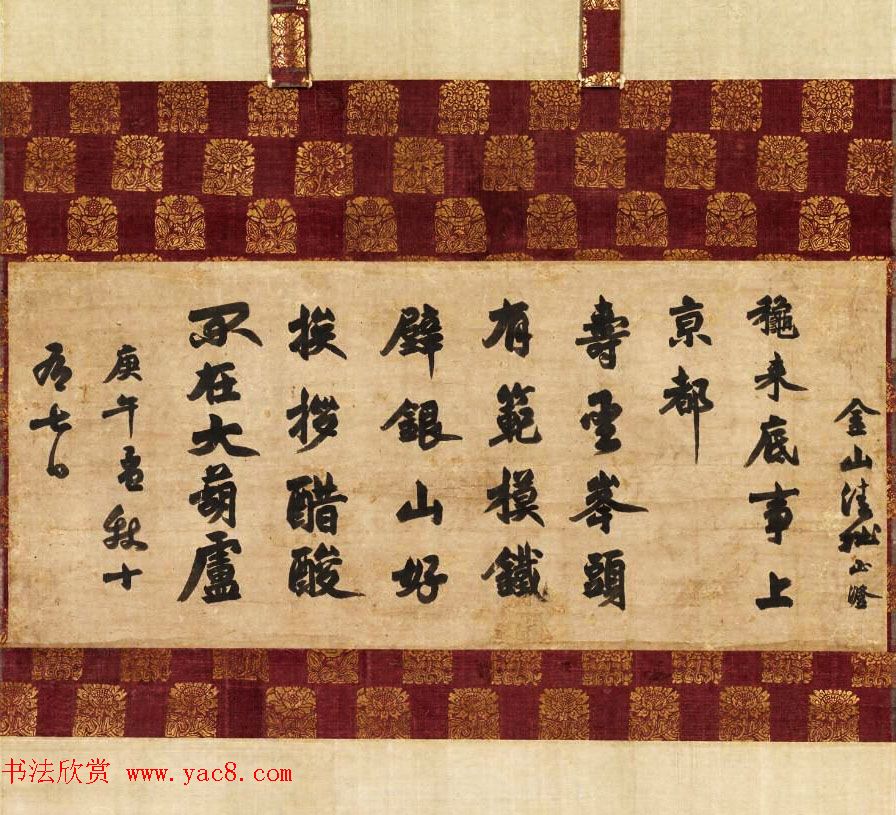 金山清拙正澄
穐来底事上
京都
壽雲峯頭
有範模鐵
壁銀山好
挨拶醋酸
不在大葫盧
庚午孟秋十
有七日
书法欣赏 www.yac8.com